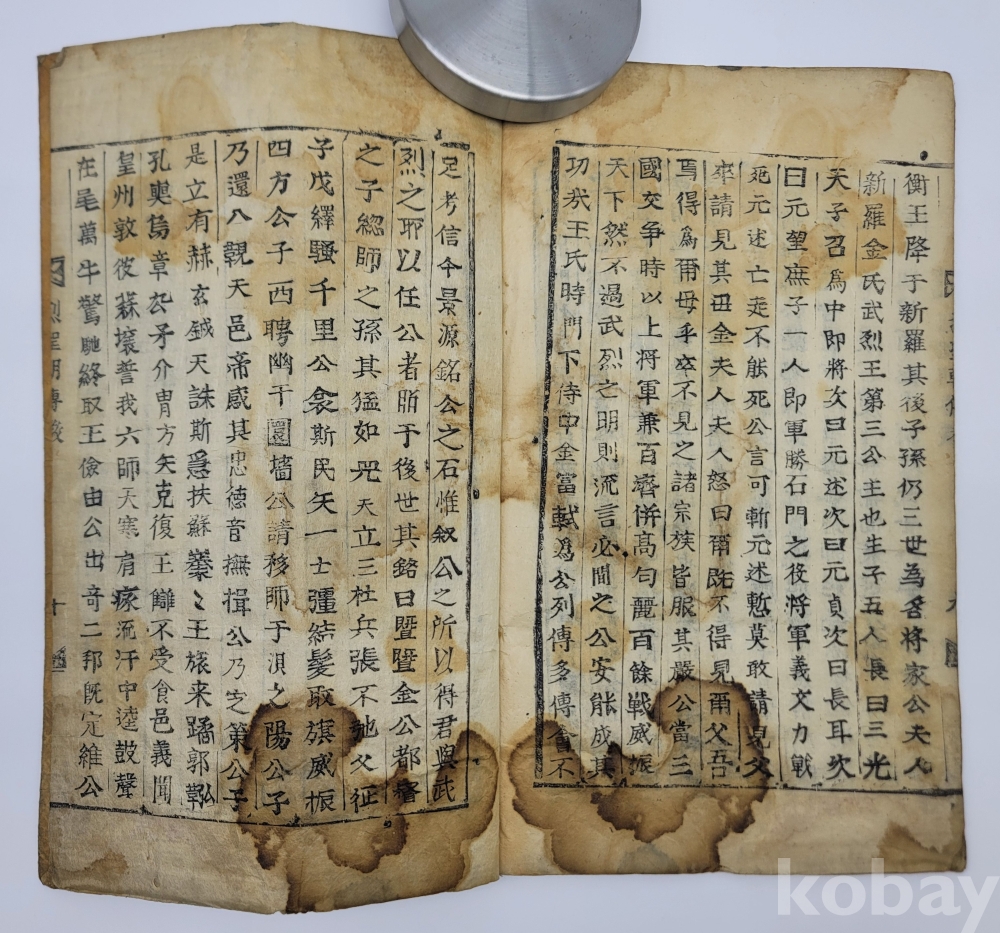 衡王降于新羅其後子孫仍三世為名將家公夫人
新羅金氏武烈王第三公主也生子五人長曰三光
天子召為中郎將次曰元述次曰元貞次曰長耳次
曰元望庶子一人即軍勝石門之役將軍義文力戰
死元述亡走不能死公言可斬元述慙莫敢請見父
卒請見其母金夫人夫人怒曰爾旣不得見爾父吾
焉得為爾母乎卒不見之諸宗族皆服其嚴公當三
國交爭時以上將軍兼百濟併高句麗百餘戰威振
天下然不過武烈之明則流言必間之公安能成其
功哉王氏時門下侍中金富軾爲公列傳多傳會不
足考信今景源銘公之石惟叙公之所以得君與武
烈之耶以任公者貽于後世其銘曰曁曁金公都督
之子總師之孫其猛如虎天立三杜兵張不弛父征
子戊繹騷千里公哀斯民矢一士彊結髮取旗威振
四方公子西聘幽于圜墙公請移師于浿之陽公子
乃還八覲天邑帝感其忠德音撫揖公乃定策公子
是立有赫玄鉞天誅斯急扶蘇業〻王旅来蹻郭
孔奭鳥章厹矛介冑方矢克復王讎不受食邑義聞
皇州敦彼蘇壤誓我六師天寒肩瘃流汗中逵鼓聲
在尾萬牛驚馳終取王儉由公出奇二邦旣定維公
十
九
kobay